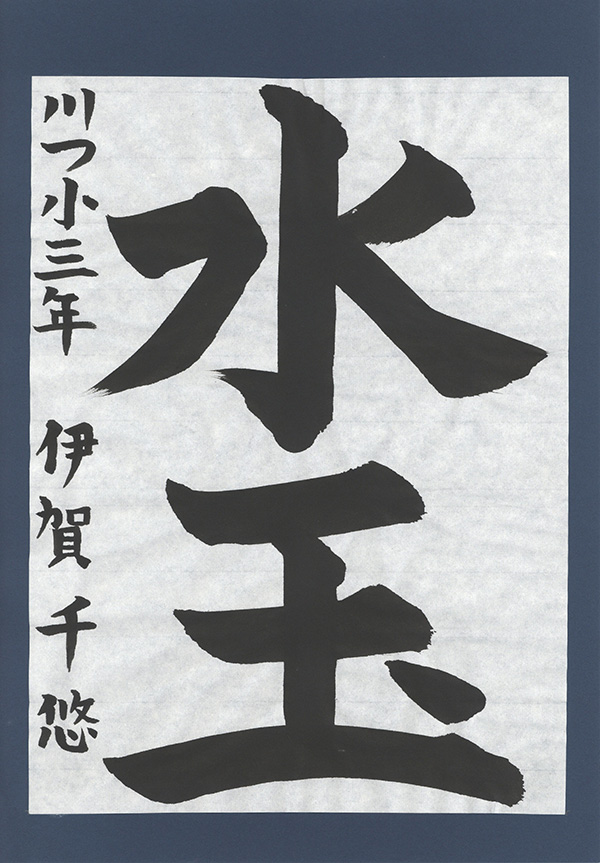 水玉
川つ小三年 伊賀千悠